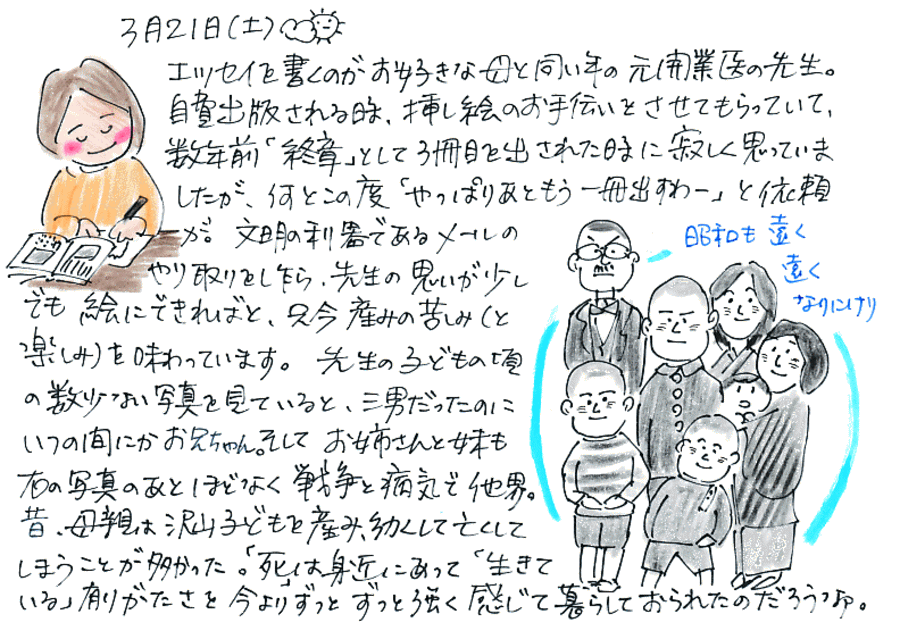 3月21日(土)
エッセイを書くのがお好きな母と同い年の元開業医の先生。
自費出版される時、挿し絵のお手伝いをさせてもらっていて、
数年前「終章」として3冊目を出された時に寂しく思っていま
したが、何とこの度「やっぱりあともう一冊出すわー」と依頼
が。文明の利器であるメールの
やり取りをし乍ら、先生の思いが少し
でも絵にできればと、只今産みの苦しみ(と
楽しみ)を味わっています。先生の子どもの頃
の数少ない写真を見ていると、三男だったのに
いつの間にかお兄ちゃん。そしてお姉さんと妹も
右の写真のあとほどなく戦争と病気で他界。
昔、母親は沢山子どもを産み、幼くして亡くして
しまうことが多かった。「死」は身近にあって「生きて
いる」有りがたさを今よりずっとずっと強く感じて暮らしておられたのだろうなぁ。
昭和も遠く
遠く
なりにけり